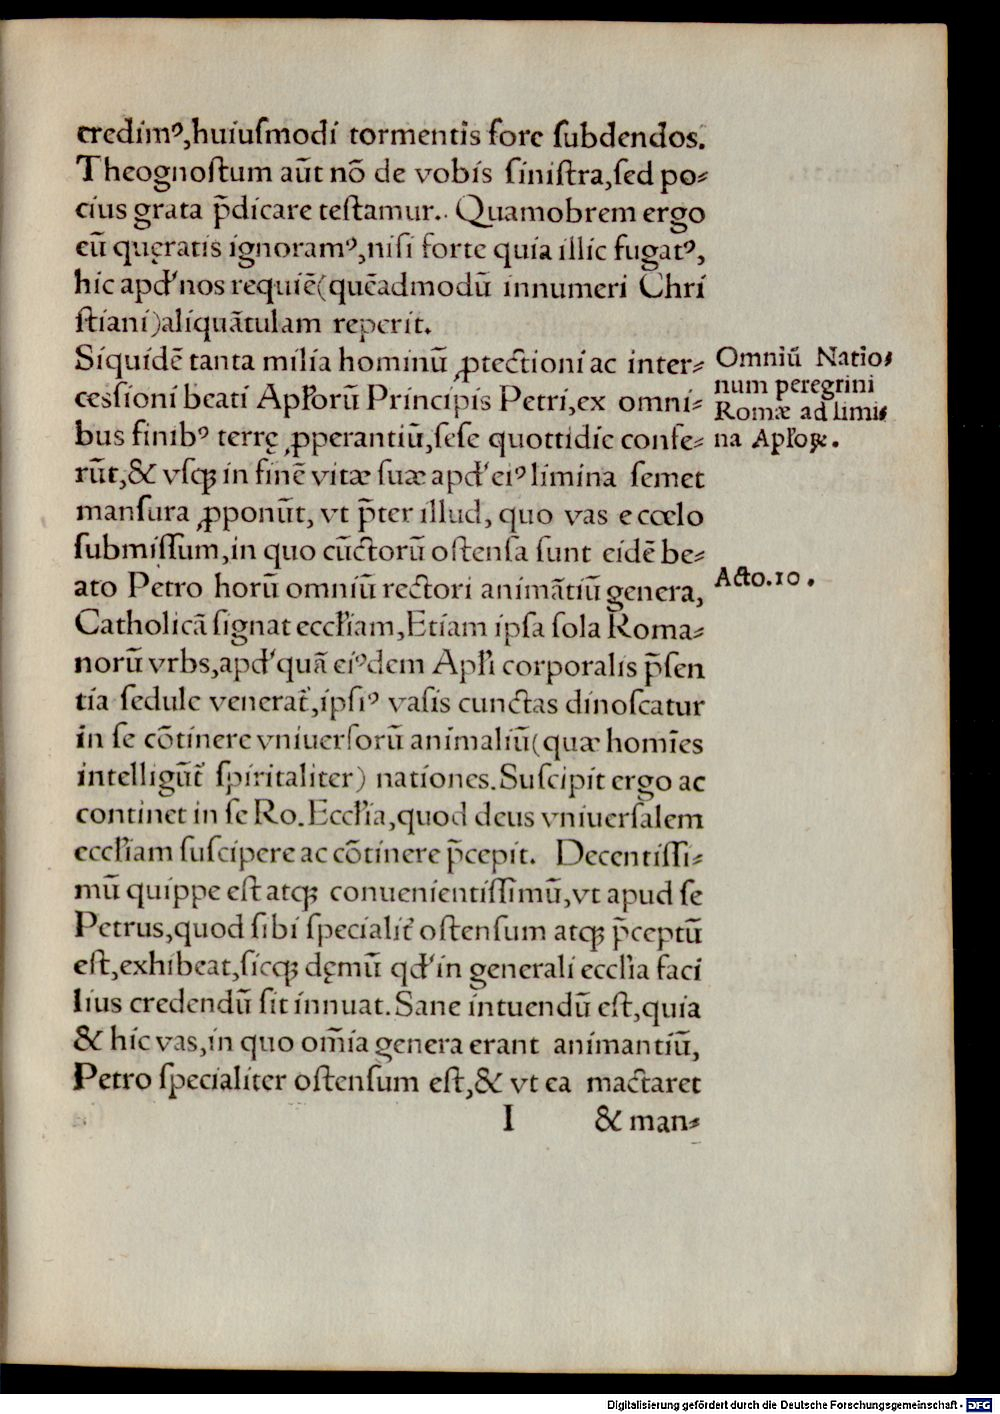 credimꝰ,huiuſmodi tormentis fore ſubdendos.
Theognoſtum aũt nõ de vobis ſiniſtra,ſed po⸗
cius grata p̃dicare teſtamur.. Quamobrem ergo
eũ quęratis ignoramꝰ,niſi forte quia illic fugatꝰ,
hic apd' nos requiẽ(quẽadmodũ innumeri Chri
ſtiani)aliquãtulam reperit.
Siquidẽ tanta milia hominũ ꝓtectioni ac inter⸗
ceſſioni beati Apľorũ Principis Petri,ex omni⸗
bus finibꝰ terrę ꝓperantiũ,ſeſe quottidie confe⸗
rũt,& vſqꝫ in finẽ vitæ ſuæ apd' eiꝰ limina ſemet
manſura ꝓponũt, vt p̃ter illud, quo vas e cœlo
ſubmiſſum,in quo cũctorũ oſtenſa ſunt eidẽ be⸗
ato Petro horũ omniũ rectori animãtiũ genera,
Catholicã ſignat eccľiam,Etiam ipſa ſola Roma⸗
norũ vrbs,apd' quã eiꝰdem Apľi corporalis p̃ſen
tia ſedule venerat̃,ipſiꝰ vaſis cunctas dinoſcatur
in ſe cõtinere vniuerſorũ animaliũ(quæ homĩes
intelligũt̃ ſpiritaliter) nationes.Suſcipit ergo ac
continet in ſe Ro.Eccľia,quod deus vniuerſalem
eccľiam ſuſcipere ac cõtinere p̃cepit. Decentiſſi⸗
mũ quippe eſt atqꝫ conuenientiſſimũ,vt apud ſe
Petrus,quod ſibi ſpecialit̃ oſtenſum atqꝫ p̃ceptũ
eſt,exhibeat,ſicqꝫ dęmũ qd' in generali eccľia faci
lius credendũ ſit innuat.Sane intuendũ eſt,quia
& hic vas,in quo om̃ia genera erant animantiũ,
Petro ſpecialiter oſtenſum eſt,& vt ea mactaret
I & man⸗
Omniũ Natio⸗
num peregrini
Romæ ad limi⸗
na Apľoꝝ.
Acto.10.
Digitalisierung gefördert durch die Deutsche Forschungsgemeinschaft - DFG